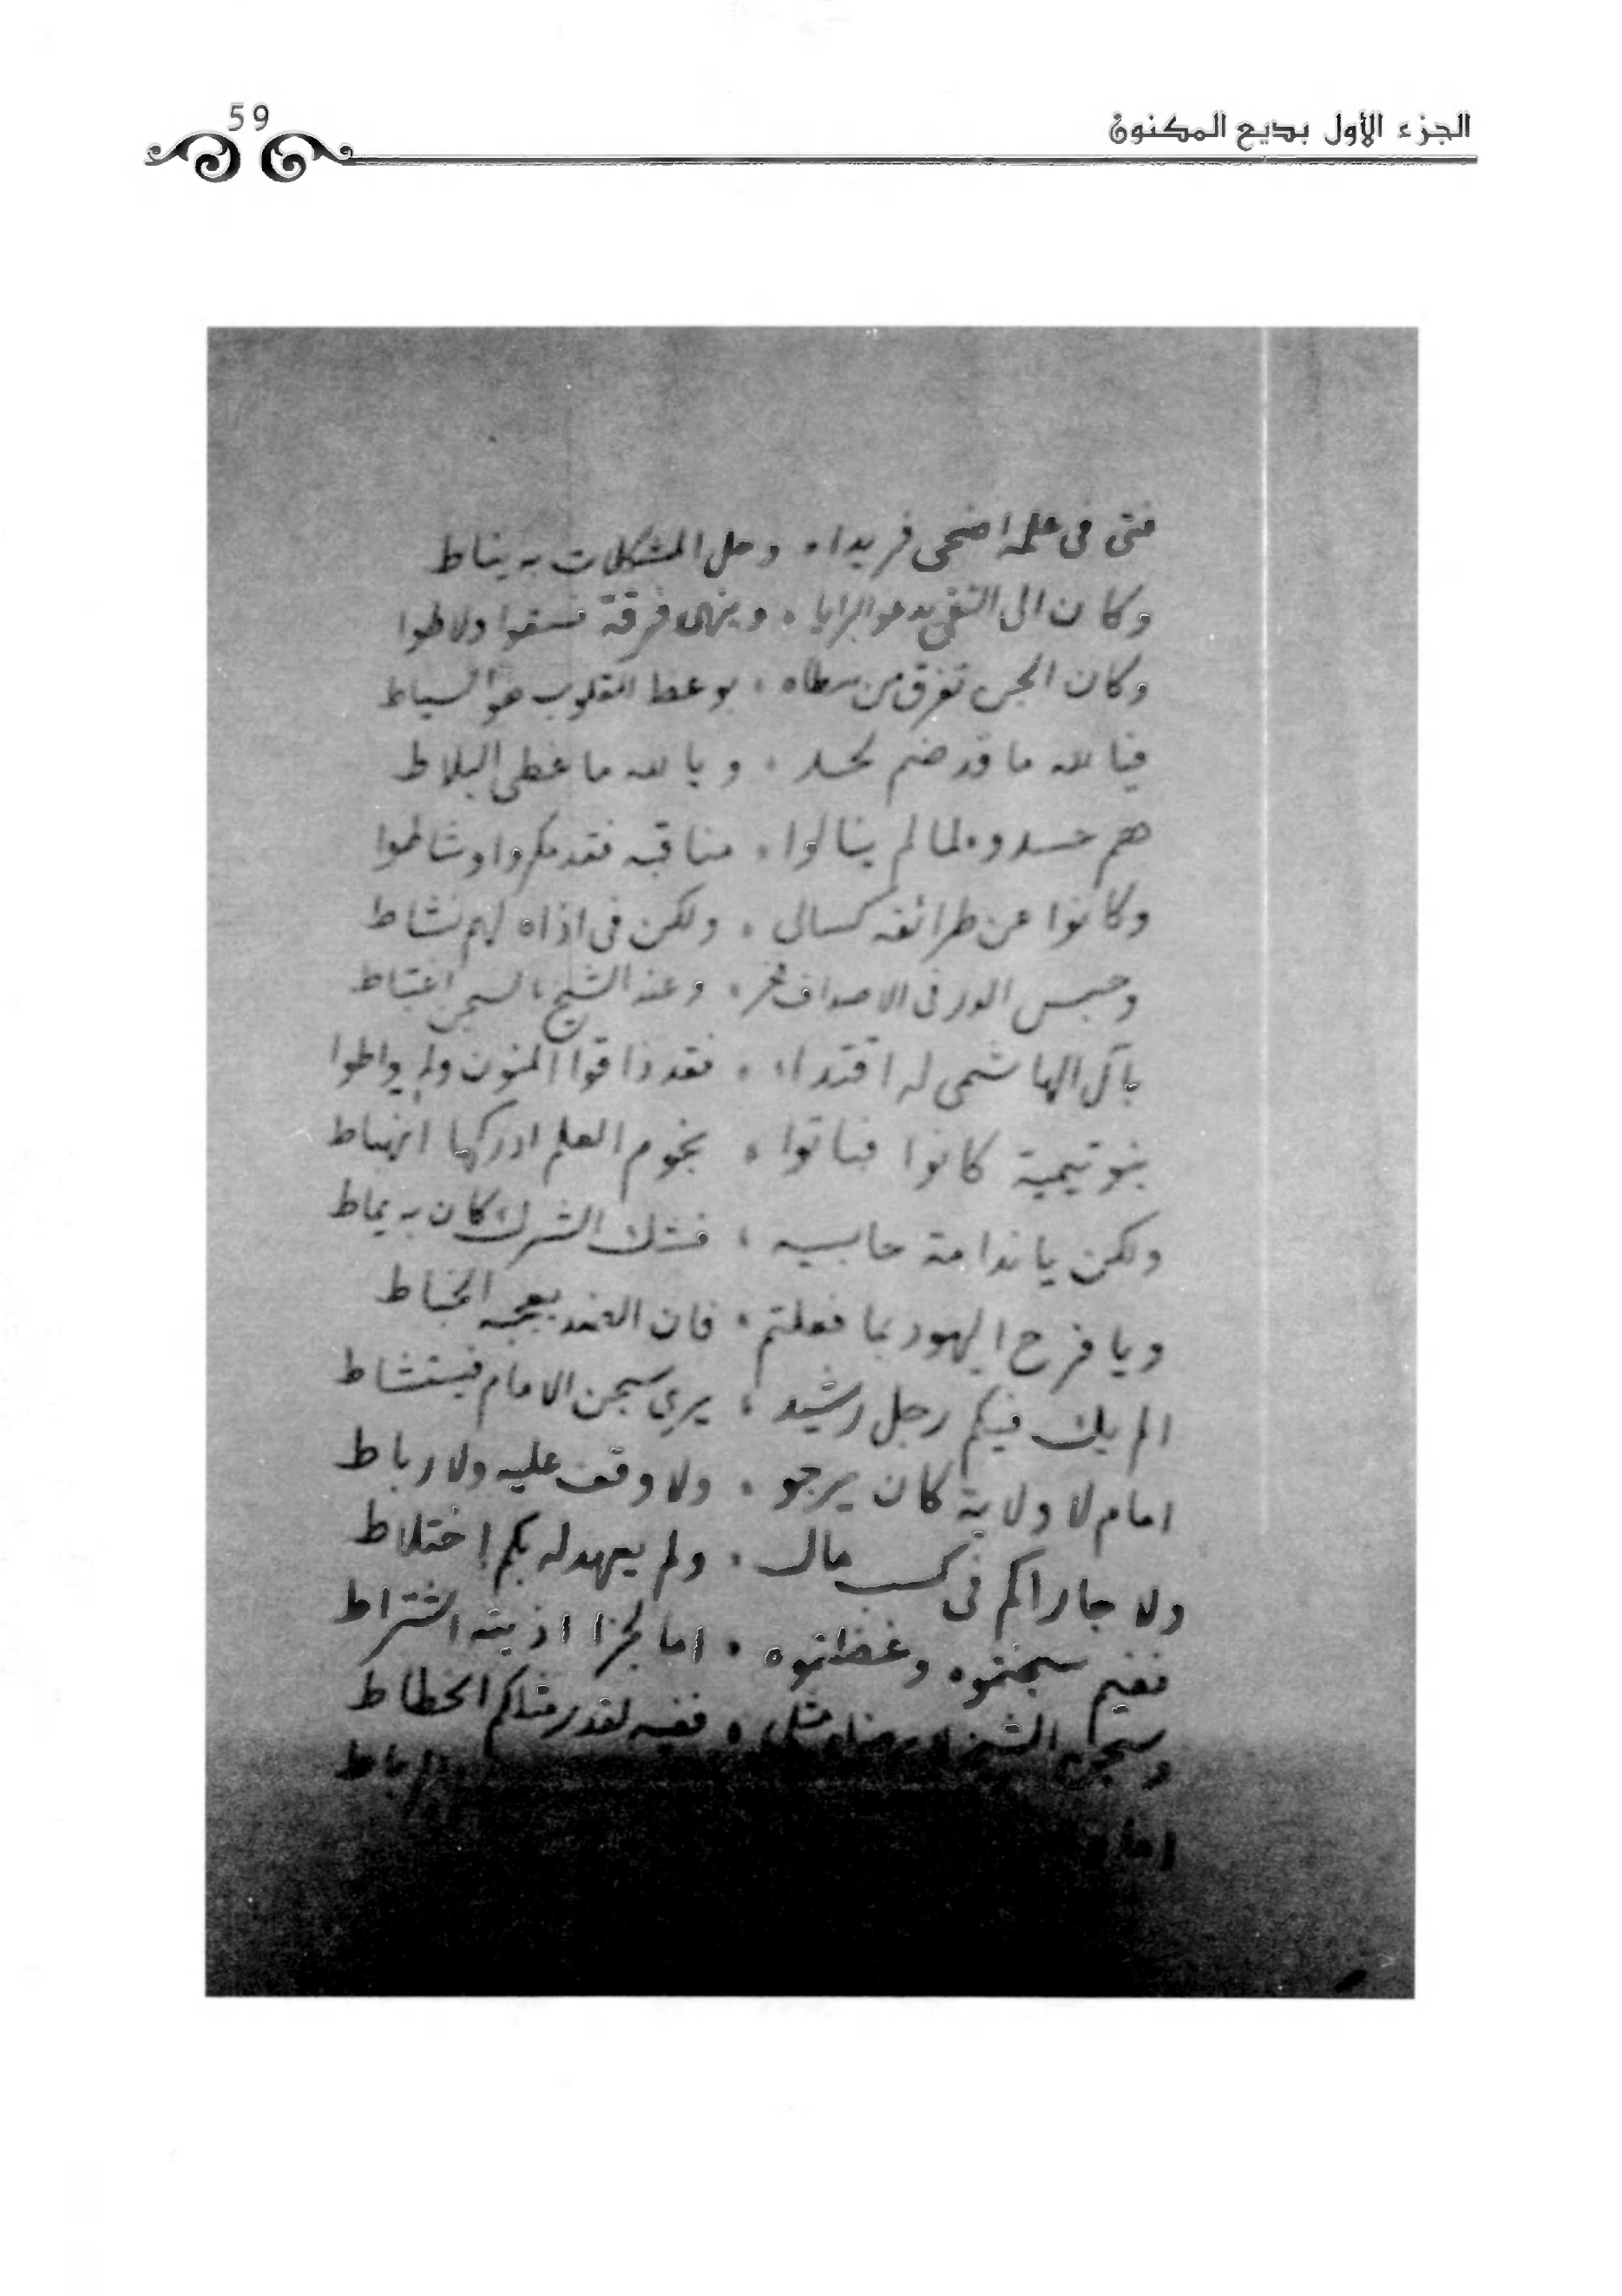 59
الجزء الأول بديع المكنون
فتى فى علمه اضحى فريدا ٠ وحل المشكلات به يناط
وكان الى التقى يدعو البرايا ٠ وينهى فرقة فسقوا ولاطوا
وكان الجن تفرق من سطاه ٠ بوعظ القلوب هو السياط
فيا لله ما قد ضم لحد ٠ ويا لله ما غطى البلاط
هم حسدوه لما لم ينالوا ٠ مناقبه فقد مكروا وشاطوا
وكانوا عن طرائقه كسالى ٠ ولكن فى اذاه لهم نشاط
وحبس الدر فى الاصداف فخر ٠ وعند الشيخ بالسجن اغتباط
بآل الهاشمى له اقتداء ٠ فقد ذاقوا المنون ولم يواطوا
بنو تيمية كانوا فباتوا ٠ نجوم العلم ادركها انهباط
ولكن يا ندامة حابسيه ٠ فشك الشرك كان به يماط
ويا فرح اليهود بما فعلتم ٠ فان الضد يعجبه الخباط
الم يك فيكم رجل رشيد ٠ يرى سجن الامام فيستشاط
امام لا ولاية كان يرجو ٠ ولا وقف عليه ولا رباط
ولا جاراكم فى كسب مال ٠ ولم يعهد له بكم اختلاط
ففيم سجنتموه وغظتموه ٠ اما لجزا اذيته اشتراط
وسجن الشيخ لا يرضاه مثلى ٠ ففيه لقدر مثلكم انحطاط
اما